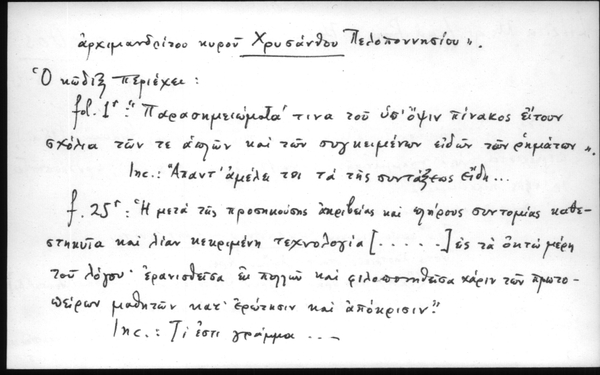 ἀρχιμανδρίτου κυροῦ Χρυσάνθου Πελοποννησίου".
Ὁ κῶδιξ περιέχει:
fol. 1ʳ: "Παρασημειώματά τινα τοῦ ὑπ' ὄψιν πίνακος εἴτουν
σχόλια τῶν τε ἁπλῶν καὶ τῶν συγκειμένων εἰδῶν τῶν ῥημάτων".
Inc.: Ἅπαντ' ἀμέλει τοι τὰ τῆς συντάξεως εἴδη...
f. 25ʳ: "Ἡ μετὰ τῆς προσηκούσης ἀκριβείας καὶ πλήρους συντομίας καθε-
στηκυῖα καὶ λίαν κεκριμένη τεχνολογία [.....] εἰς τὰ ὀκτὼ μέρη
τοῦ λόγου· ἐρανισθεῖσα ἐκ πολλῶν καὶ φιλοπονηθεῖσα χάριν τῶν πρωτο-
πείρων μαθητῶν κατ' ἐρώτησιν καὶ ἀπόκρισιν".
Inc.: Τί ἐστι γράμμα ...